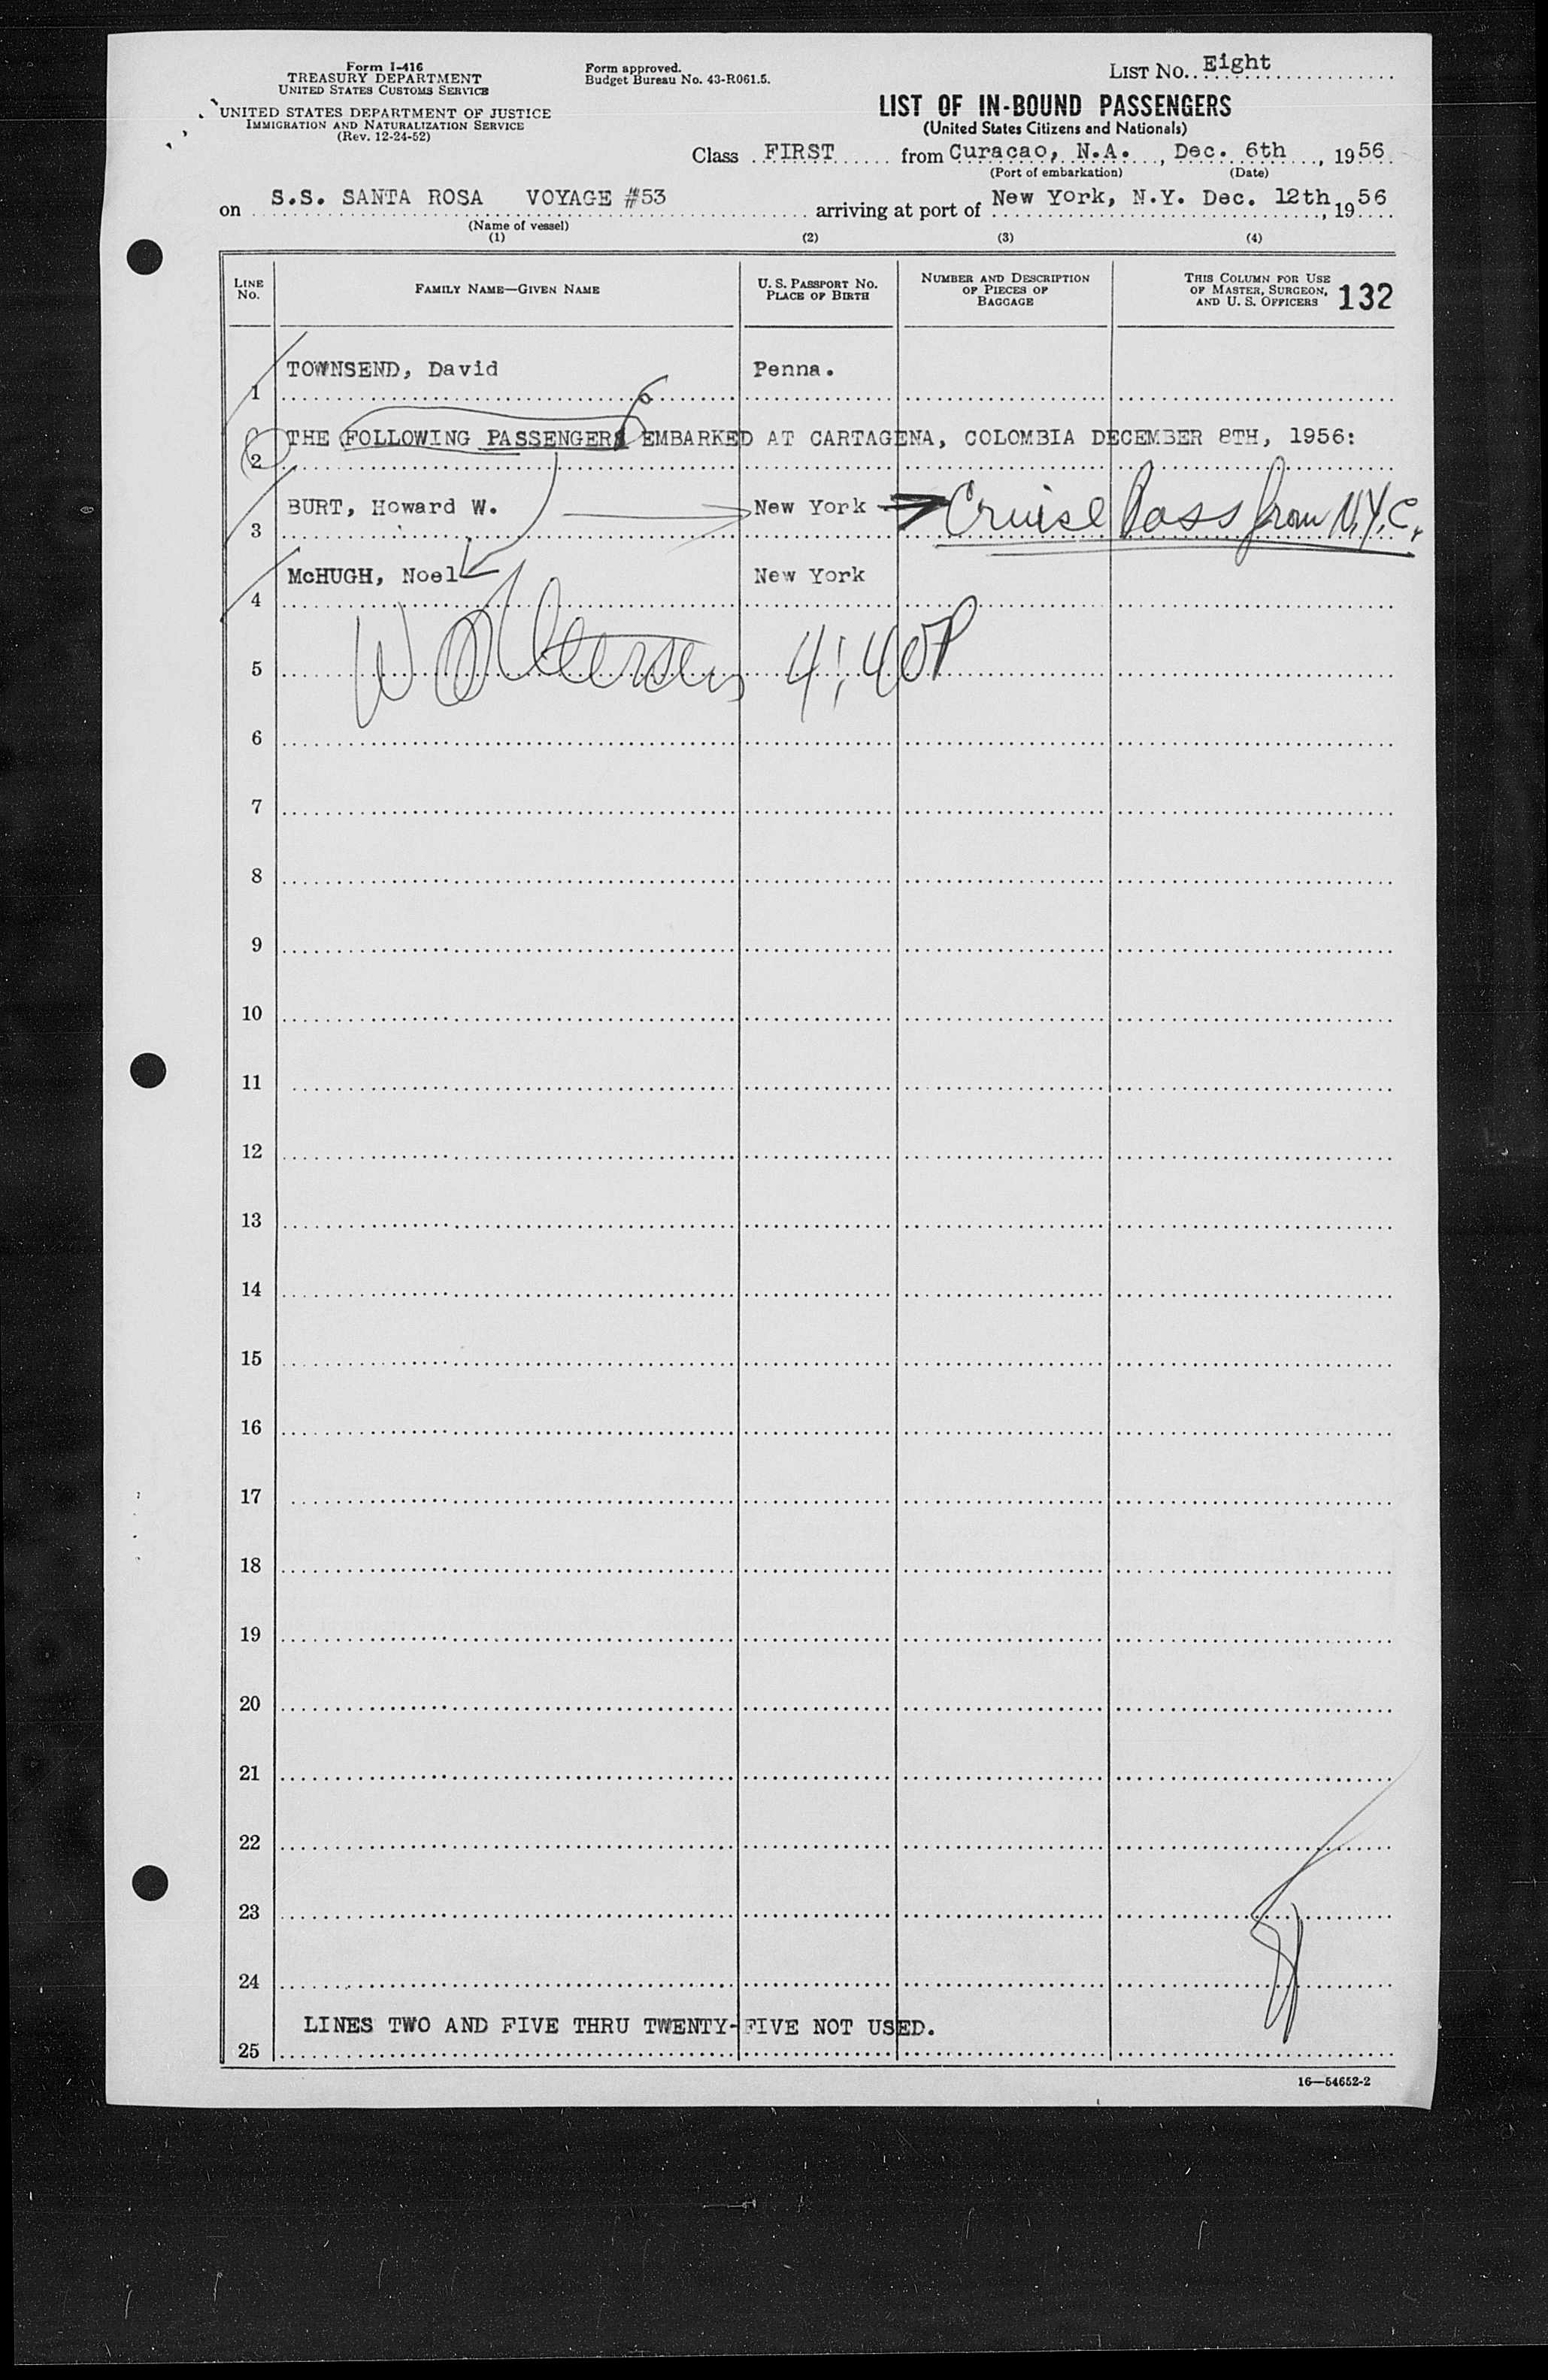 Form I-416
TREASURY DEPARTMENT
UNITED STATES CUSTOMS SERVICE
UNITED STATES DEPARTMENT OF JUSTICE
IMMIGRATION AND NATURALIZATION SERVICE
(Rev. 12-24-52)
Form approved.
Budget Bureau No. 43-R061.5.
LIST No. Eight
LIST OF IN-BOUND PASSENGERS
(United States Citizens and Nationals)
Class FIRST from Curacao, N.A., Dec. 6th, 1956
(Port of embarkation) (Date)
on S.S. SANTA ROSA VOYAGE #53 arriving at port of New York, N.Y. Dec. 12th, 1956
(Name of vessel)
(1) (2) (3) (4)
LINE No. FAMILY NAME—GIVEN NAME U. S. PASSPORT No. PLACE OF BIRTH NUMBER AND DESCRIPTION OF PIECES OF BAGGAGE THIS COLUMN FOR USE OF MASTER, SURGEON, AND U. S. OFFICERS 132
1 TOWNSEND, David Penna.
2 THE FOLLOWING PASSENGERS EMBARKED AT CARTAGENA, COLOMBIA DECEMBER 8TH, 1956:
3 BURT, Howard W. New York Cruise Pass from N.Y.C.
4 McHUGH, Noel New York
5 4:40P
6
7
8
9
10
11
12
13
14
15
16
17
18
19
20
21
22
23
24
LINES TWO AND FIVE THRU TWENTY-FIVE NOT USED.
25
16—54652-2